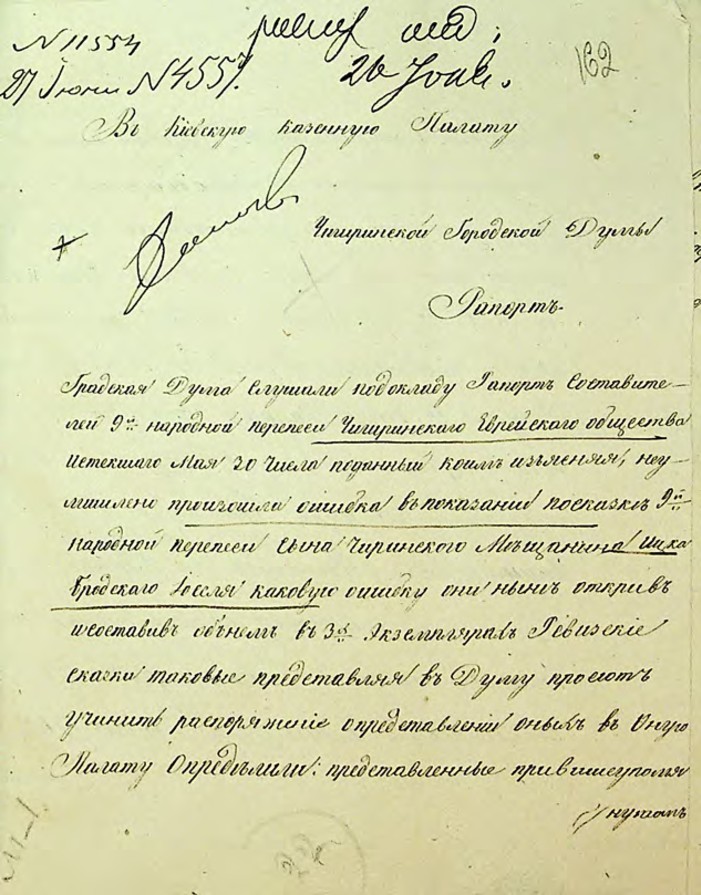 N 11554
27 Іюня N 4557.
26 Іюня.
162
Въ Кіевскую казенную Палату
Чигиринской Городской Думы
Рапортъ.
Градская Дума слушали подокладу Рапортъ Составите-
лей 9й народной переписи Чигиринскаго Еврейскаго общества
истекшаго Мая 20 числа поданный коимъ изъясняя, неу-
мышлено произошла ошибка въ показаніи посказкѣ 9й
народной переписи Сына Чиринскаго Мѣщанина Ицка
Бродскаго Іоселя каковую ошибку они нынѣ открывъ
исоставивъ объ немъ въ 3хъ Экземплярахъ Ревизскіе
сказки таковые представляя въ Думу просютъ
учинить распоряженіе опредставленіи оныхъ въ Оную
Палату Опредѣлили: представленные привышеупомя
нутомъ